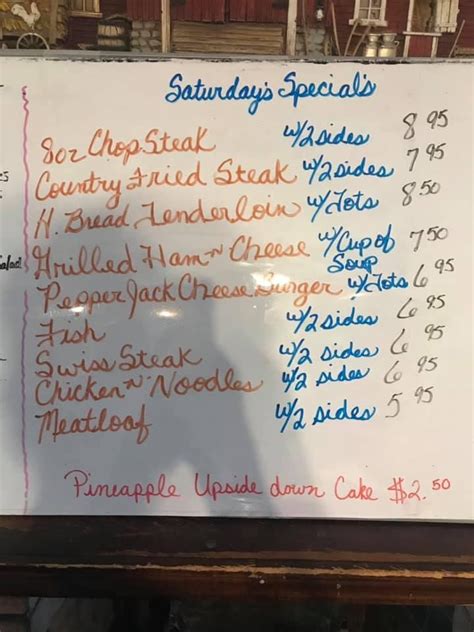 Saturday's Special's
8oz Chop Steak w/2 sides 8 95
Country Fried Steak w/2 sides 7 95
H. Bread Tenderloin w/Tots 8 50
Grilled Ham n Cheese w/Cup of Soup 7 50
Pepper Jack Cheese Burger w/Tots 6 95
Fish w/2 sides 6 95
Swiss Steak w/2 sides 6 95
Chicken n Noodles w/2 sides 6 95
Meatloaf w/2 sides 5 95
Pineapple Upside down Cake $2.50